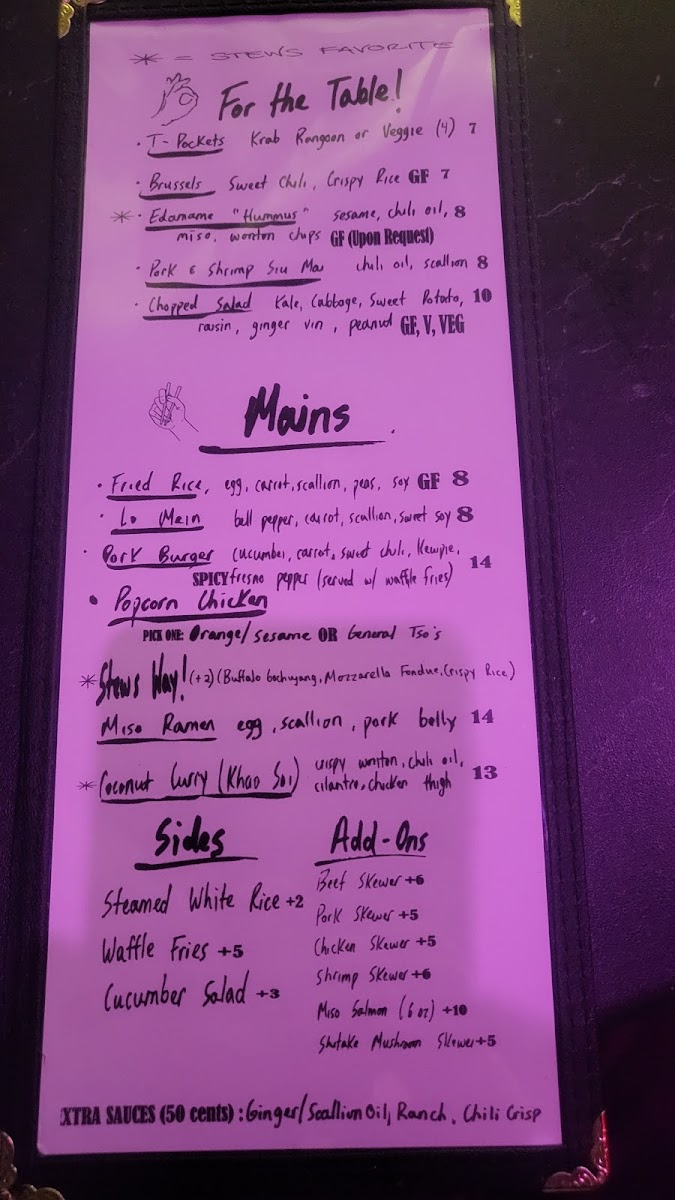 * = STEWS FAVORITE
For the Table!
· T-Pockets Krab Rangoon or Veggie (4) 7
· Brussels Sweet Chili, Crispy Rice GF 7
* · Edamame "Hummus" sesame, chili oil, 8
miso, wonton chips GF (Upon Request)
· Pork & Shrimp Siu Mai chili oil, scallion 8
· Chopped Salad Kale, Cabbage, Sweet Potato, 10
raisin, ginger vin, peanut GF, V, VEG
Mains
· Fried Rice, egg, carrot, scallion, peas, soy GF 8
· Lo Mein bell pepper, carrot, scallion, sweet soy 8
· Pork Burger cucumber, carrot, sweet chili, Kewpie, 14
SPICY fresno pepper (served w/ waffle fries)
· Popcorn Chicken
PICK ONE: Orange/Sesame OR General Tso's
* Stews Way! (+2) (Buffalo Gochujang, Mozzarella Fondue, Crispy Rice)
Miso Ramen egg, scallion, pork belly 14
* Coconut Curry (Khao Soi) crispy wonton, chili oil, 13
cilantro, chicken thigh
Sides
Steamed White Rice +2
Waffle Fries +5
Cucumber Salad +3
Add-Ons
Beef Skewer +6
Pork Skewer +5
Chicken Skewer +5
Shrimp Skewer +6
Miso Salmon (6 oz) +10
Shitake Mushroom Skewer +5
EXTRA SAUCES (50 cents) : Ginger/Scallion Oil, Ranch, Chili Crisp